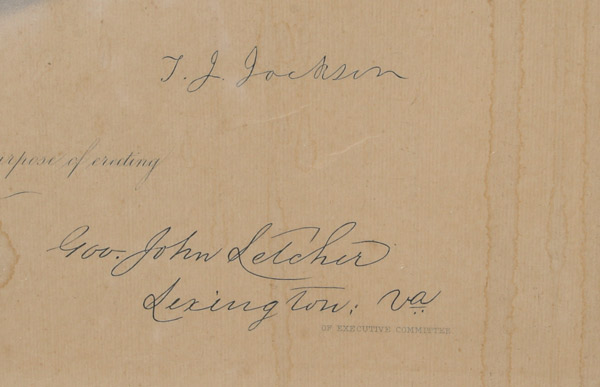 T. J. Jackson
urpose of erecting
Gov. John Letcher
Lexington; Va
OF EXECUTIVE COMMITTEE